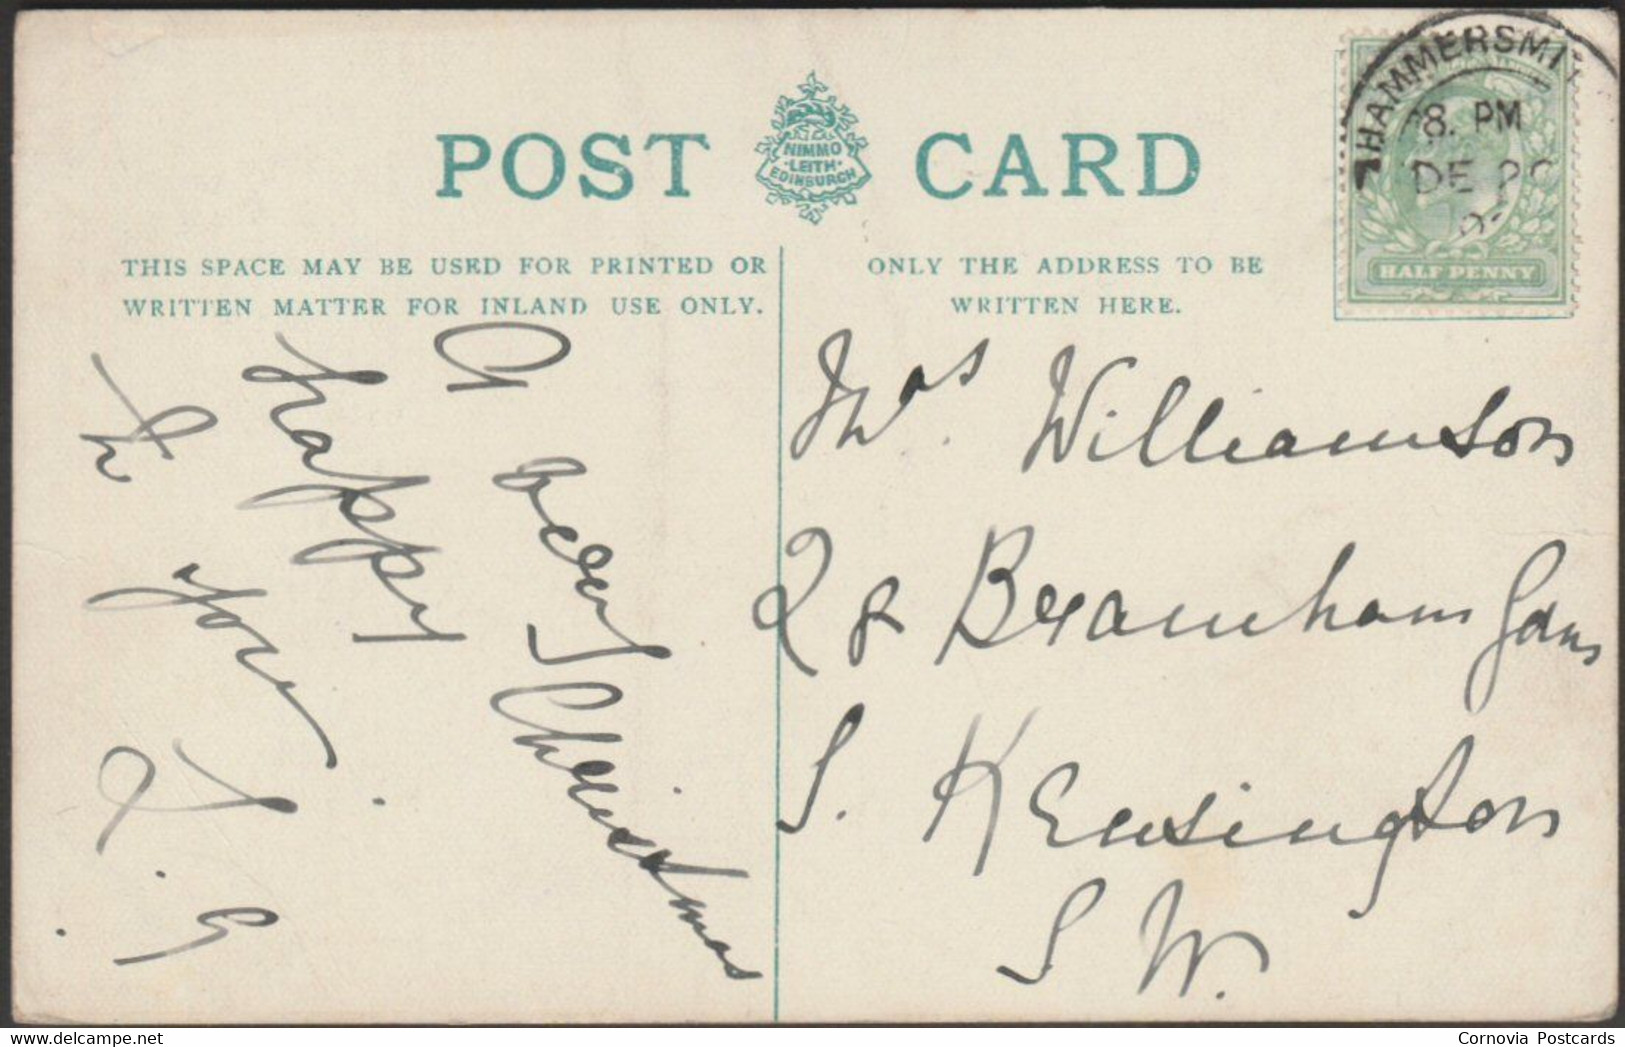 POST CARD
NIMMO
LEITH
EDINBURGH
THIS SPACE MAY BE USED FOR PRINTED OR
WRITTEN MATTER FOR INLAND USE ONLY.
ONLY THE ADDRESS TO BE
WRITTEN HERE.
HAMMERSMI
8. PM
DE 2
HALF PENNY
A very
happy Christmas
to you.
L. G.
Mrs. Williamson
28 Bramham Gdns
S. Kensington
S. W.
delcampe.net
Cornovia Postcards